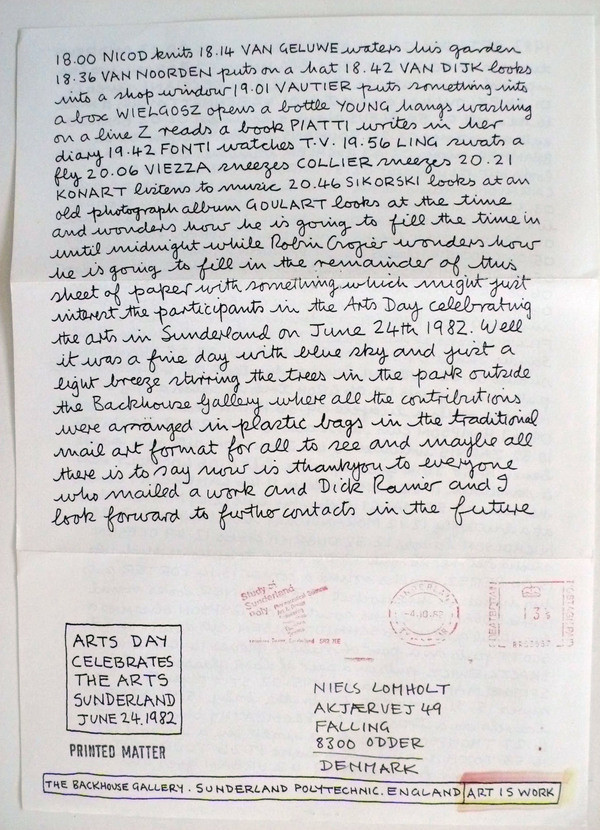 18.00 NICOD knits 18.14 VAN GELUWE waters his garden
18.36 VAN NOORDEN puts on a hat 18.42 VAN DIJK looks
into a shop window 19.01 VAUTIER puts something into
a box WIELGOSZ opens a bottle YOUNG hangs washing
on a line Z reads a book PIATTI writes in her
diary 19.42 FONTI watches T.V. 19.56 LING swats a
fly 20.06 VIEZZA sneezes COLLIER sneezes 20.21
KONART listens to music 20.46 SIKORSKI looks at an
old photograph album GOULART looks at the time
and wonders how he is going to fill the time in
until midnight while Robin Crozier wonders how
he is going to fill in the remainder of this
sheet of paper with something which might just
interest the participants in the Arts Day celebrating
the arts in Sunderland on June 24th 1982. Well
it was a fine day with blue sky and just a
light breeze stirring the trees in the park outside
the Backhouse Gallery where all the contributions
were arranged in plastic bags in the traditional
mail art format for all to see and maybe all
there is to say now is thankyou to everyone
who mailed a work and Dick Rainer and I
look forward to further contacts in the future
Study at
Sunderland
Poly
-4.10.82
GREAT BRITAIN
ARTS DAY
CELEBRATES
THE ARTS
SUNDERLAND
JUNE 24.1982
PRINTED MATTER
NIELS LOMHOLT
AKJÆRVEJ 49
FALLING
8300 ODDER
DENMARK
THE BACKHOUSE GALLERY. SUNDERLAND POLYTECHNIC. ENGLAND ART IS WORK